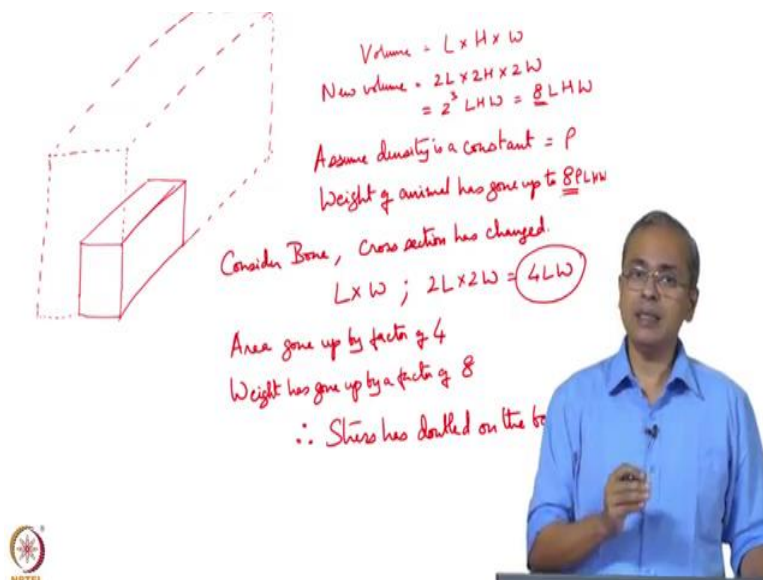 Volume = L x H x W
New volume = 2L x 2H x 2W
= 2³ LHW = 8 LHW
Assume density is a constant = ρ
Weight of animal has gone up to 8ρLHW
Consider Bone, cross section has changed.
L x W ; 2L x 2W = 4LW
Area gone up by factor of 4
Weight has gone up by a factor of 8
∴ Stress has doubled on the
NPTEL